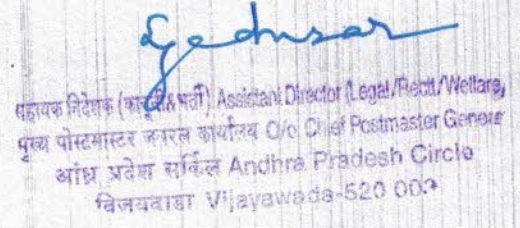 सहायक निदेशक (कानूनी & भर्ती) Assistant Director (Legal/Rectt/Welfare)
मुख्य पोस्टमास्टर जनरल कार्यालय O/o Chief Postmaster General
आंध्र प्रदेश सर्किल Andhra Pradesh Circle
विजयवाडा Vijayawada-520 003